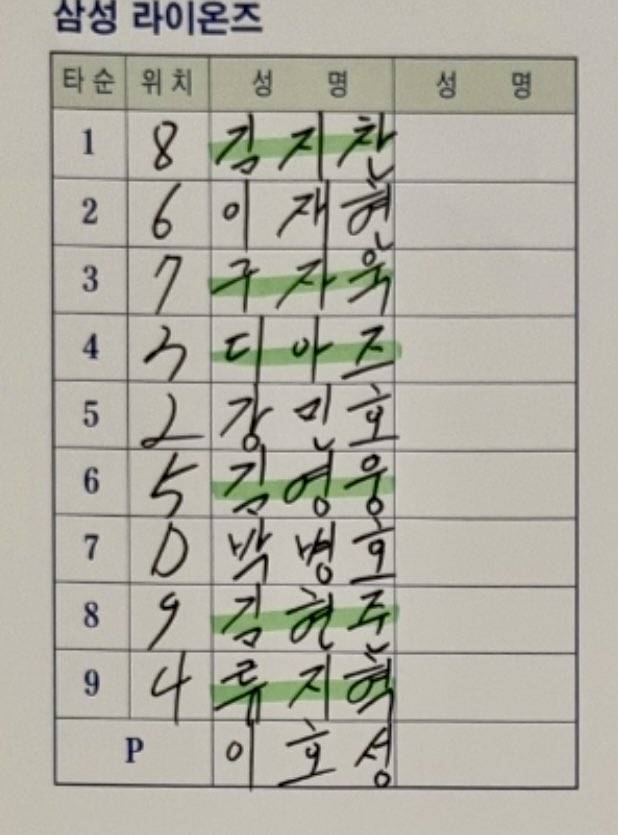 삼성 라이온즈
타순 위치 성 명 성 명
1 8 김지찬
2 6 이재현
3 7 구자욱
4 3 디아즈
5 2 강민호
6 5 김영웅
7 D 박병호
8 9 김헌곤
9 4 류지혁
P 이호성